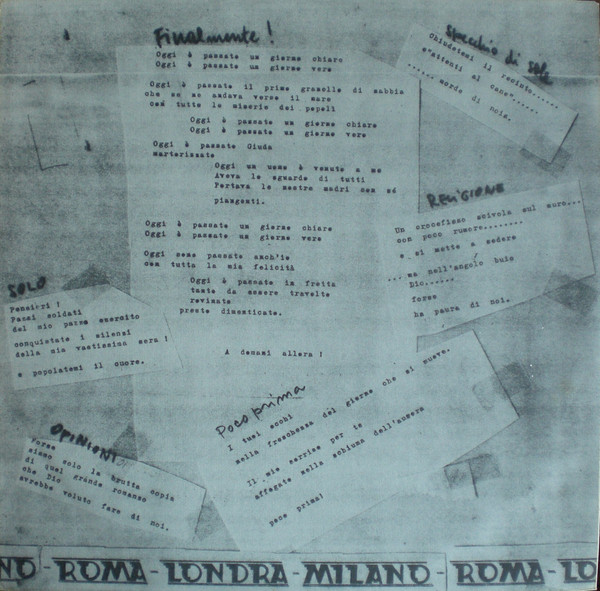 Finalmente!
Oggi è passato un giorno chiaro
Oggi è passato un giorno vero
Oggi è passato il primo granello di sabbia
che se ne andava verso il mare
con tutte le miserie dei popoli
Oggi è passato un giorno chiaro
Oggi è passato un giorno vero
Oggi è passato Giuda
martorizzato
Oggi un uomo è venuto a me
Aveva lo sguardo di tutti
Portava le nostre madri con sé
piangenti.
Oggi è passato un giorno chiaro
Oggi è passato un giorno vero
Oggi sono passato anch'io
con tutta la mia felicità
Oggi è passata in fretta
tanto da essere travolto
rovinato
presto dimenticato.
A domani allora !
Specchio di sole
Chiudetemi il recinto......
e "attenti al cane"......
...... mordo di noia.
RELIGIONE
Un crocefisso scivola sul muro...
con poco rumore.......
e si mette a sedere
... ma nell'angolo buio
Dio......
forse
ha paura di noi.
SOLO
Pensieri !
Pazzi soldati
del mio pazzo esercito
conquistate i silenzi
della mia vastissima sera !
e popolatemi il cuore.
Poco prima
I tuoi occhi
nella freschezza del giorno che si muove.
Il mio sorriso per te
affogato nella schiuma dell'amsera
poco prima!
OPINIONI
Forse
siamo solo la brutta copia
di quel grande romanzo
che Dio
avrebbe voluto fare di noi.
NO-ROMA-LONDRA-MILANO-ROMA-LO